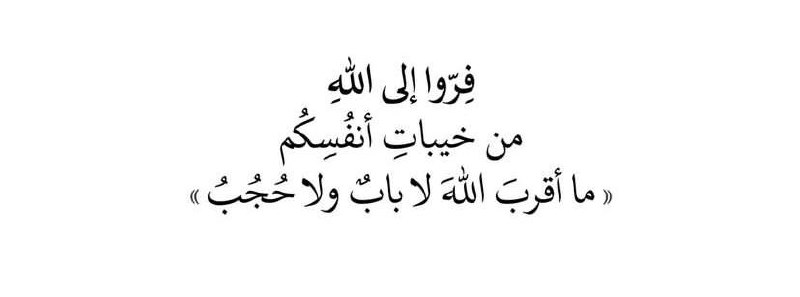 فِرّوا إلى اللهِ
من خيباتِ أنفُسِكُم
« ما أقربَ اللهَ لا بابٌ ولا حُجُبُ »